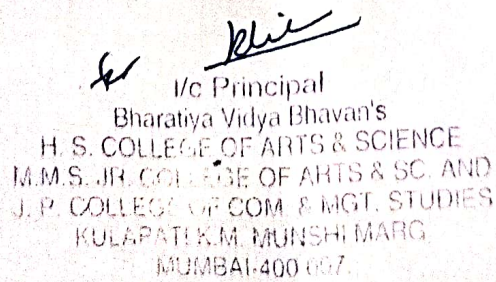 for
I/c Principal
Bharatiya Vidya Bhavan's
H. S. COLLEGE OF ARTS & SCIENCE
M.M.S. JR. COLLEGE OF ARTS & SC. AND
J. P. COLLEGE OF COM. & MGT. STUDIES
KULAPATI K.M. MUNSHI MARG,
MUMBAI-400 007.